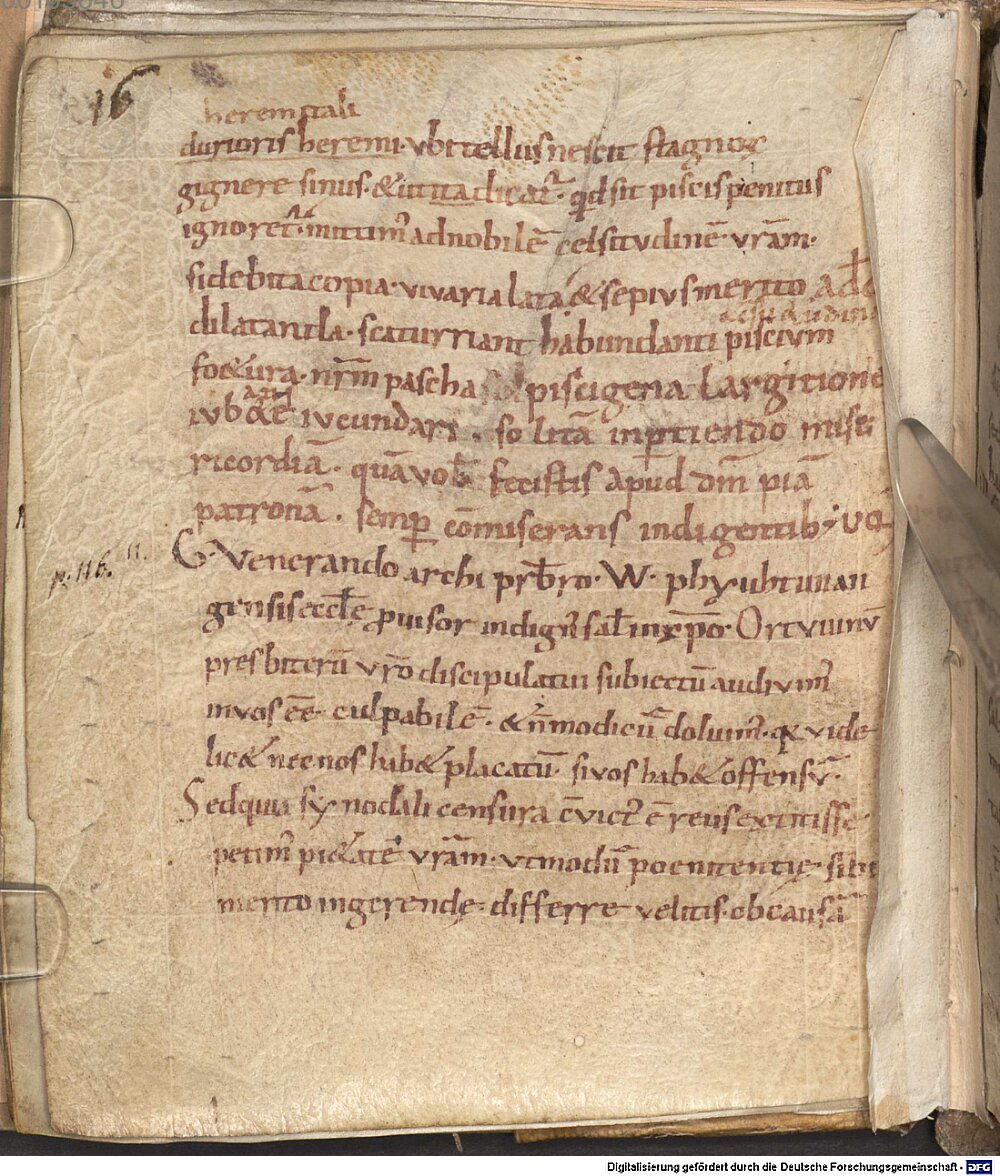 16
heremitali
durioris heremi· ubi tellus nescit stagnoꝝ
gignere sinus· & ut ita dicat᷑· qd sit piscis penitus
ignoret᷑· mitim᷑ ad nobilē celsitudinē vrām·
si debita copia· vivaria lata & sepius merito
dilatanda· scaturriant habundanti piscium
foetura· nr̄m pascha piscigena largitione
iub&e iucundari· solitā inꝑtiendo mise
ricordiā· quā vob fecistis apud dn̄m piā
patronā· semꝑ cōmiserans indigentib;
p. 116. 11.
G· Venerando archi prb̄ro· W· phyuhtuuan
gensis eccłę ꝓuisor indign᷑ sał in xp̄o· Ortuuinū
presbiterū vr̄o discipulatui subiectū audivim᷑
in vos eē culpabilē· & n̄ modicū doluim᷑· q vide
lic& nec nos hab& placatū· si vos hab& offensū·
Sed quia synodali censura cvict᷑ ē reus extitisse
petim᷑ pi&atē vrām· ut modū poenitentię sibi
merito ingerendę· differre velitis· ob causā
Digitalisierung gefördert durch die Deutsche Forschungsgemeinschaft - DFG